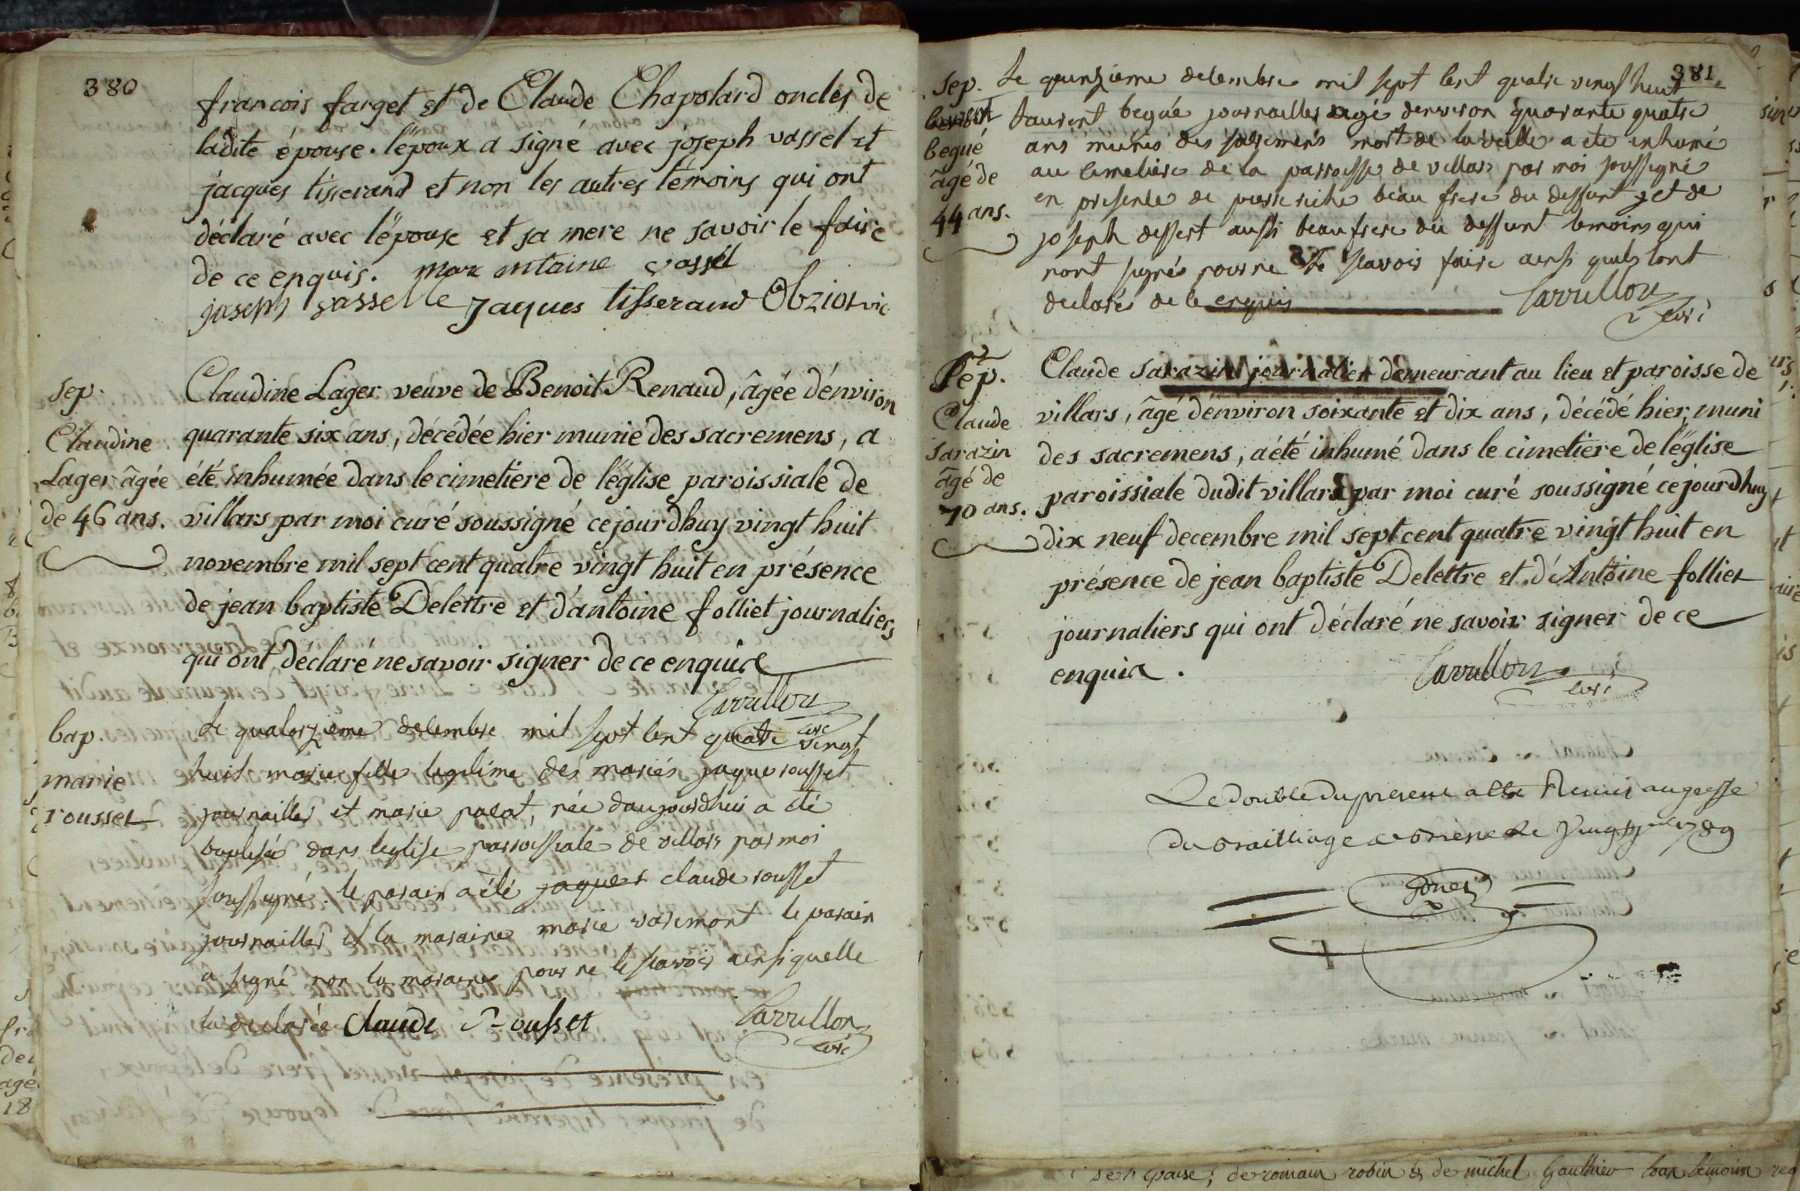 380
francois farget et de Claude Chapolard oncles de
ladite épouse. l'époux a signé avec joseph vassel et
jacques tisserand et non les autres témoins qui ont
déclaré avec l'épouse et sa mere ne savoir le faire
de ce enquis. vassel
joseph vasselle jaques tisserand Obziot vic
sep.
Claudine
Lager âgée
de 46 ans.
Claudine Lager veuve de Benoit Renaud, âgée d'environ
quarante six ans, décédée hier munie des sacremens, a
été inhumée dans le cimetiere de l'église paroissiale de
villars par moi curé soussigné ce jourdhuy vingt huit
novembre mil sept cent quatre vingt huit en présence
de jean baptiste Delettre et d'antoine folliet journaliers
qui ont déclaré ne savoir signer de ce enquis
Carrullon
curé
bap.
marie
rousset
Le quatorzieme decembre mil sept cent quatre vingt
huit marie fille legitime des mariés jaque rousset
journaillier et marie parat, née d'aujourdhui a été
baptisée dans leglise parroissiale de villars par moi
soussigné. le parain a été jaques claude rousset
journaillier et la maraine marie varemont le parain
a signé non la maraine pour ne le scavoir ainsi quelle
la declarée Claude Rousset Carrullon
curé
381
sep.
laurent
begué
âgé de
44 ans.
Le quinzieme decembre mil sept cent quatre vingt huit
laurent begué journaillier agé denviron quarante quatre
ans munis des sacrements mort de la veille a été inhumé
au cimetiere de la parroisse de villars par moi soussigné
en presence de pierre riche beau frere du deffunt, et de
joseph dessert aussi beaufrere du deffunt temoins qui
nont signés pour ne le scavoir faire ainsi quils lont
declaré de ce enquis Carrullon
curé
Sep.
Claude
sarazin
âgé de
70 ans.
Claude sarazin journalier demeurant au lieu et paroisse de
villars, âgé d'environ soixante et dix ans, décédé hier, muni
des sacremens, a été inhumé dans le cimetiere de l'église
paroissiale dudit villars par moi curé soussigné ce jourdhuy
dix neuf decembre mil sept cent quatre vingt huit en
présence de jean baptiste Delettre et d'Antoine folliet
journaliers qui ont déclaré ne savoir signer de ce
enquis.
Carrullon
curé
Le double du present a été Remis au greffe
du Bailliage de Bresse le 1789
de romain robin & de michel Gauthier